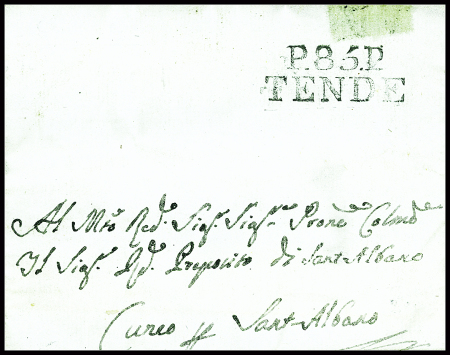 P.85.P.
TENDE
Al Mto Red. Sigr. Sigr. Prone Colmo
Il Sigr. Rd. Preposito di Sant Albano
Cuneo Sant-Albano